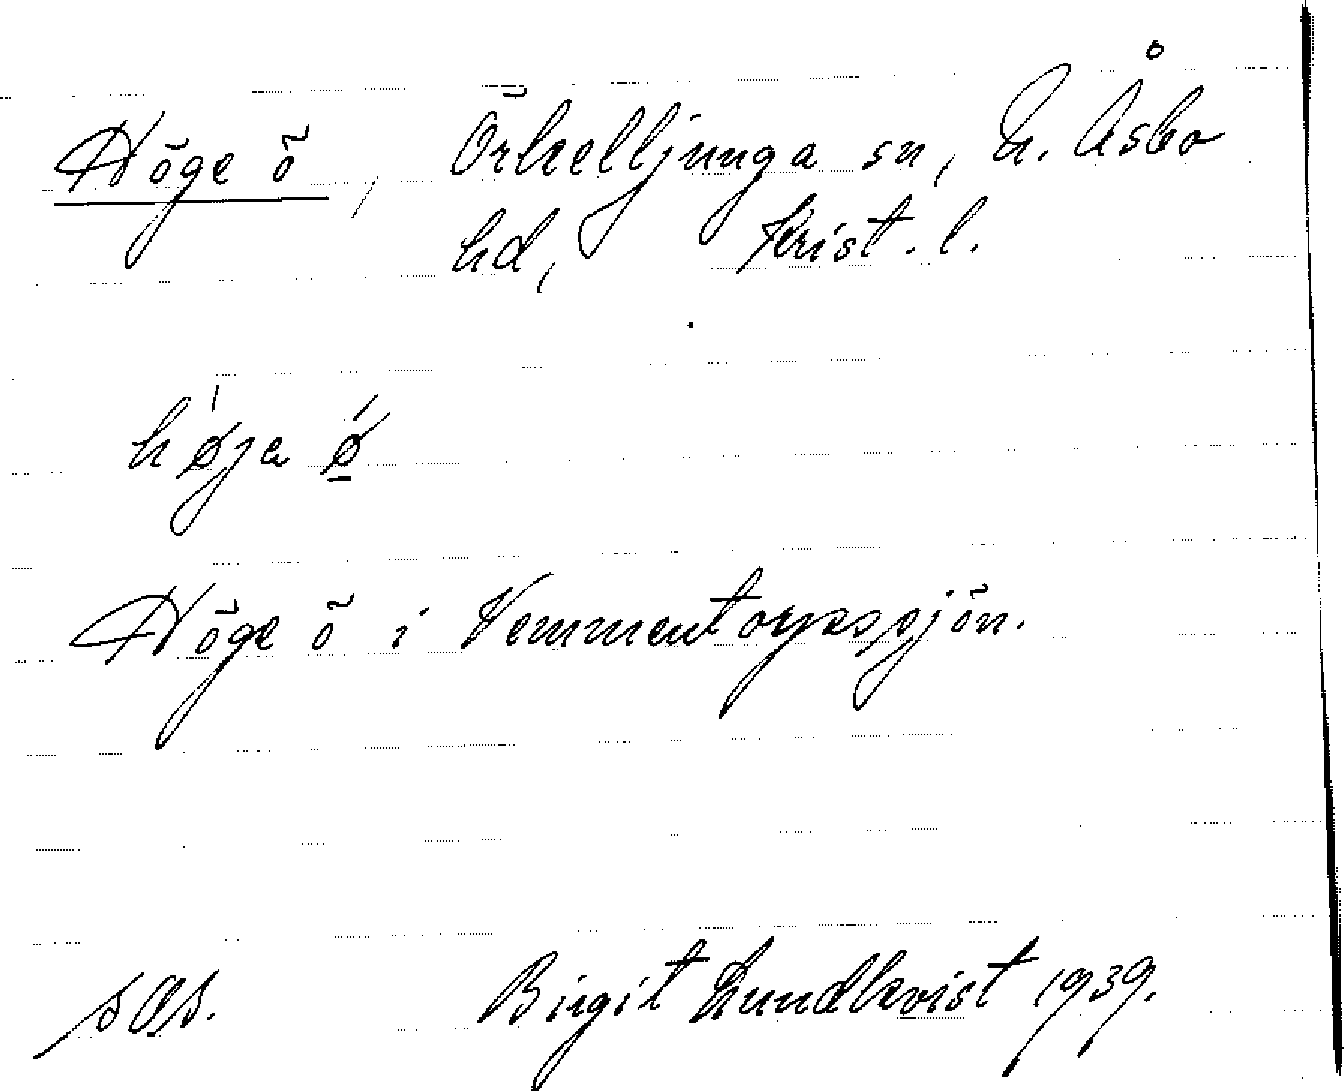 Höge ö, Örkelljunga sn, N. Åsbo
hd, Krist. l.
høja ø
Höge ö i Vemmentorpssjön.
sOs. Birgit Lundkvist 1939.